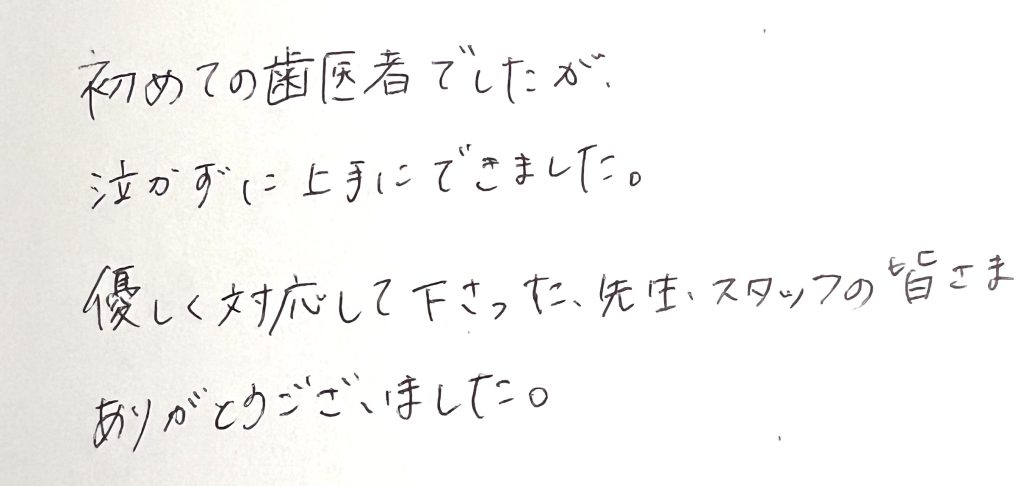 初めての歯医者でしたが、
泣かずに上手にできました。
優しく対応して下さった、先生、スタッフの皆さま
ありがとうございました。